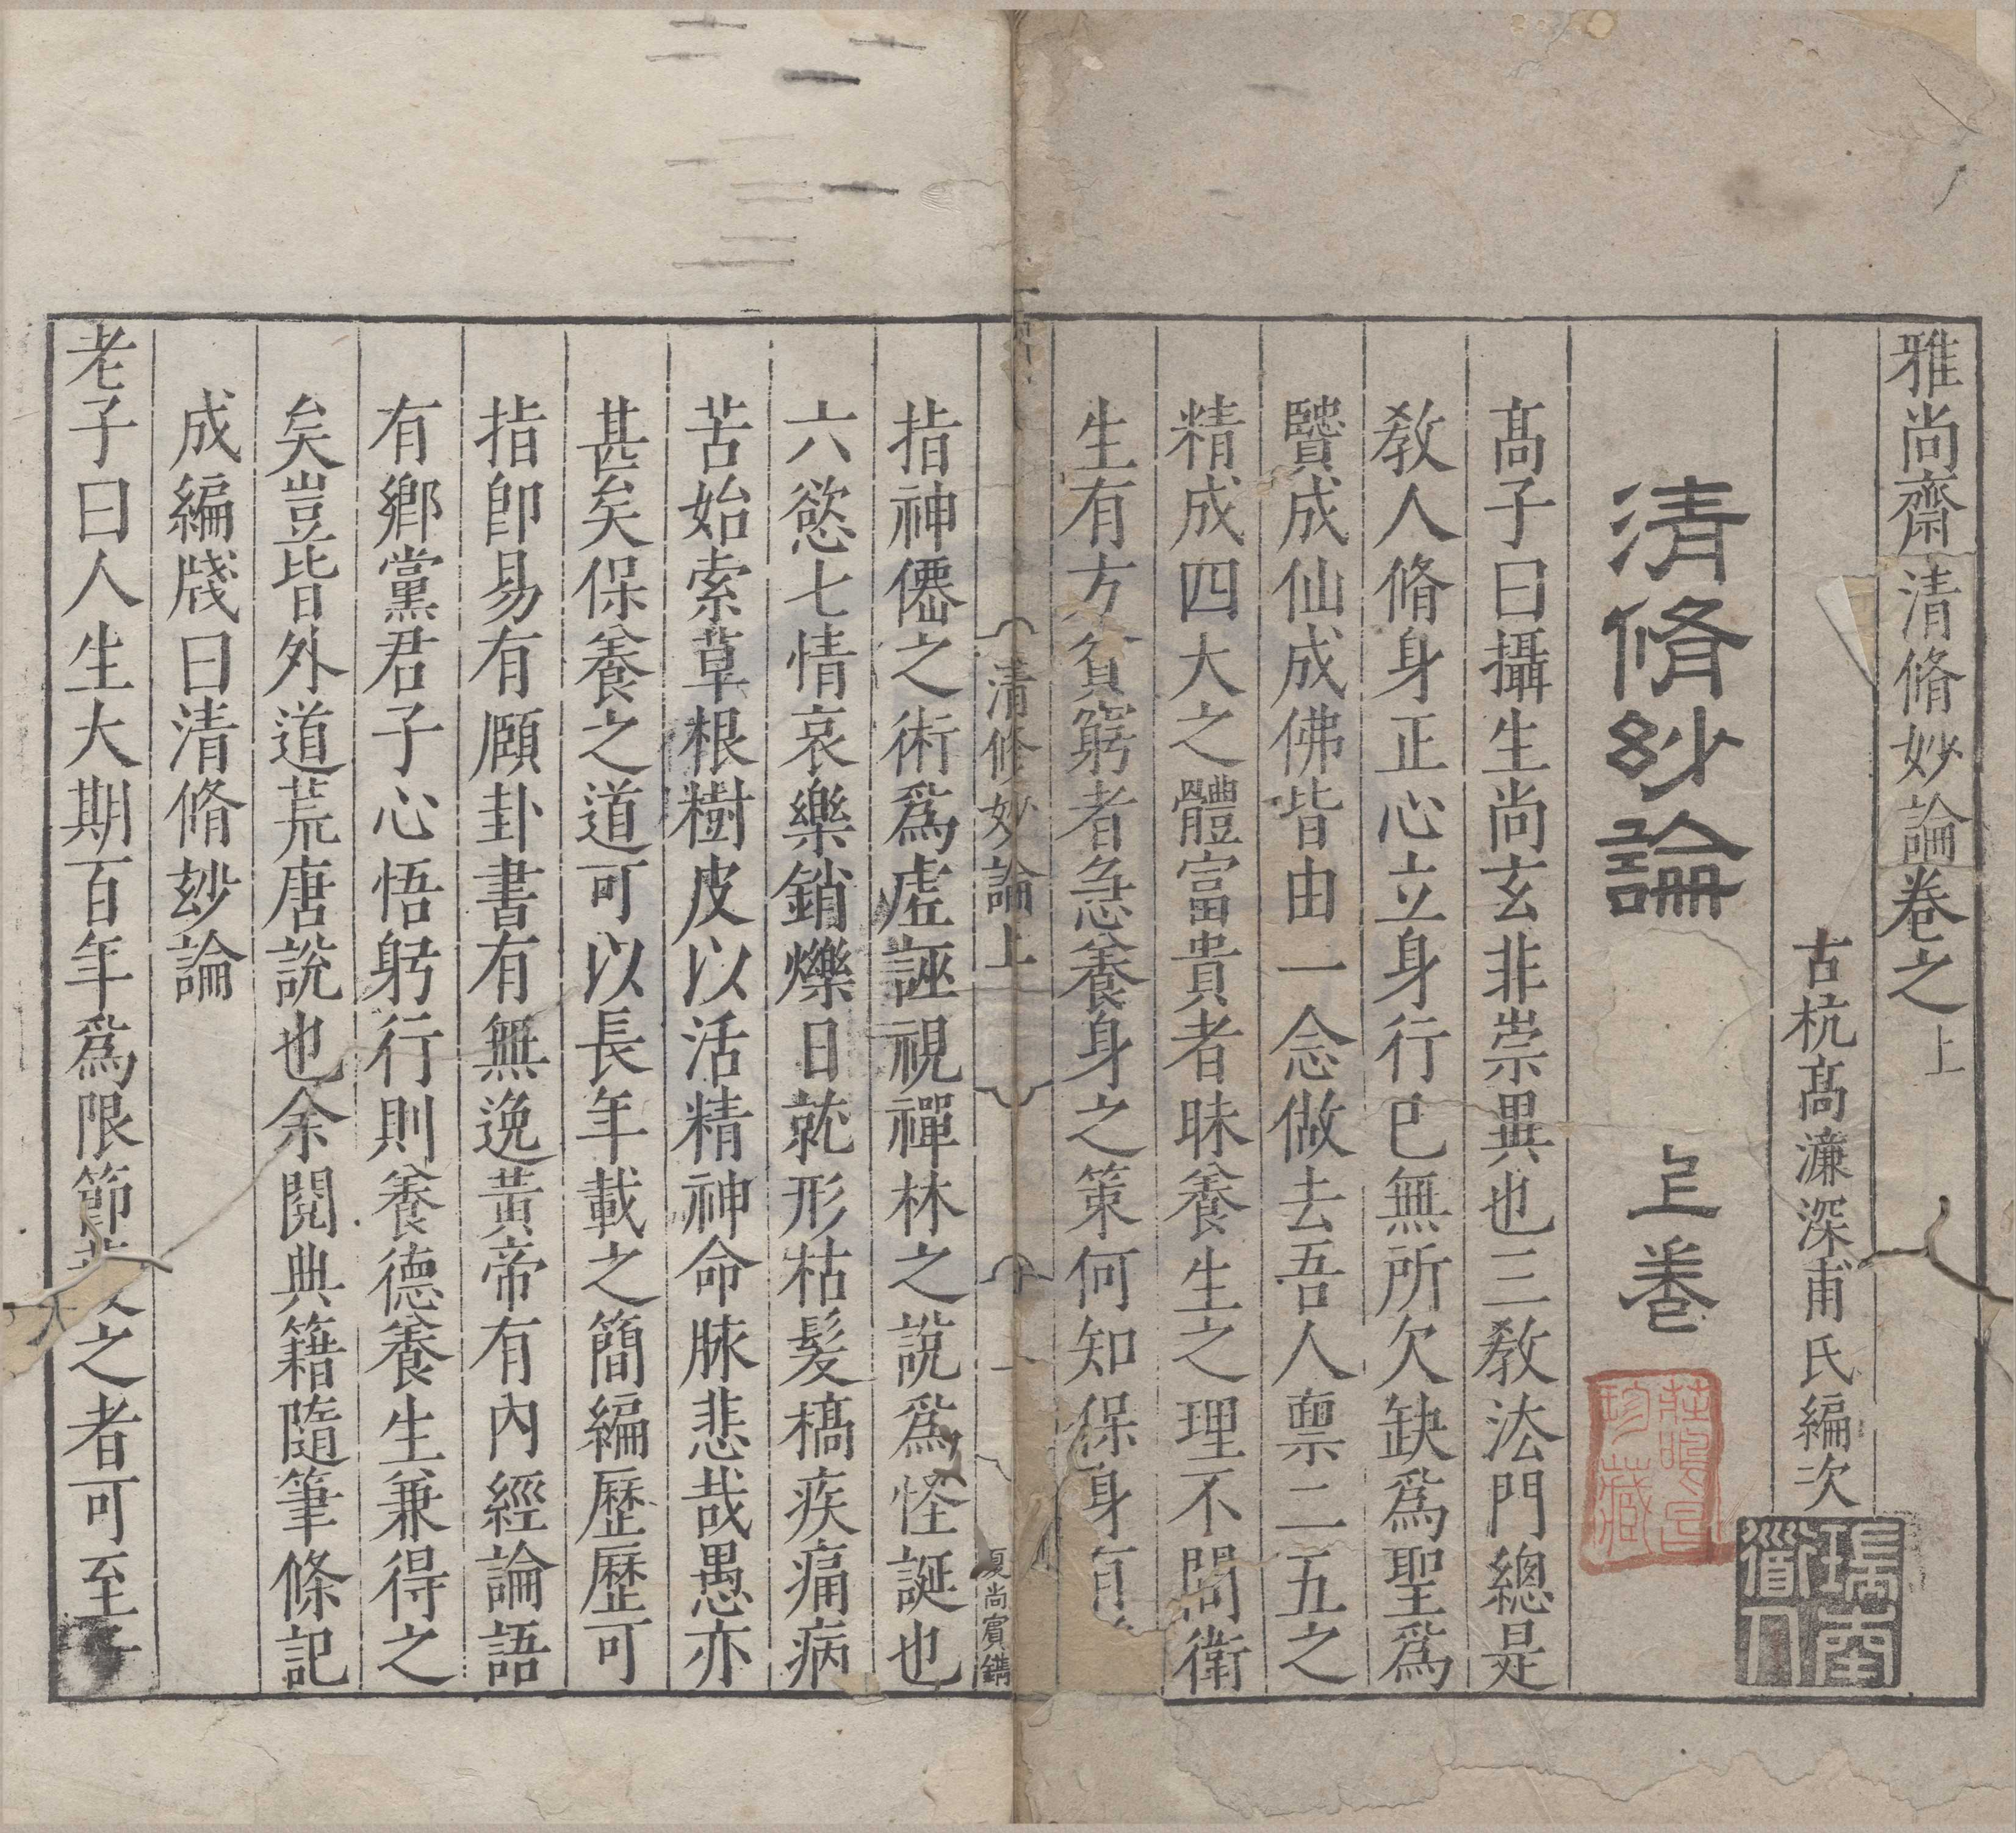 雅尚齋清脩妙論卷之上
古杭髙濂深甫氏編次
清脩玅論 上卷
髙子曰攝生尚玄非崇異也三敎法門總是
敎人脩身正心立身行已無所欠缺爲聖爲
賢成仙成佛皆由一念做去吾人禀二五之
精成四大之體富貴者昧養生之理不問衛
生有方貧窮者急養身之策何知保身有
清修妙論上
一
夏尚賓鐫
指神僊之術爲虛誣視禪林之說爲怪誕也
六慾七情哀樂銷爍日就形枯髮槁疾痛病
苦始索草根樹皮以活精神命脉悲哉愚亦
甚矣保養之道可以長年載之簡編歷歷可
指卽易有頤卦書有無逸黃帝有內經論語
有鄉黨君子心悟躬行則養德養生兼得之
矣豈皆外道荒唐說也余閱典籍隨筆條記
成編牋曰清脩玅論
老子曰人生大期百年爲限節之者可至千
瑞南道人
珍藏